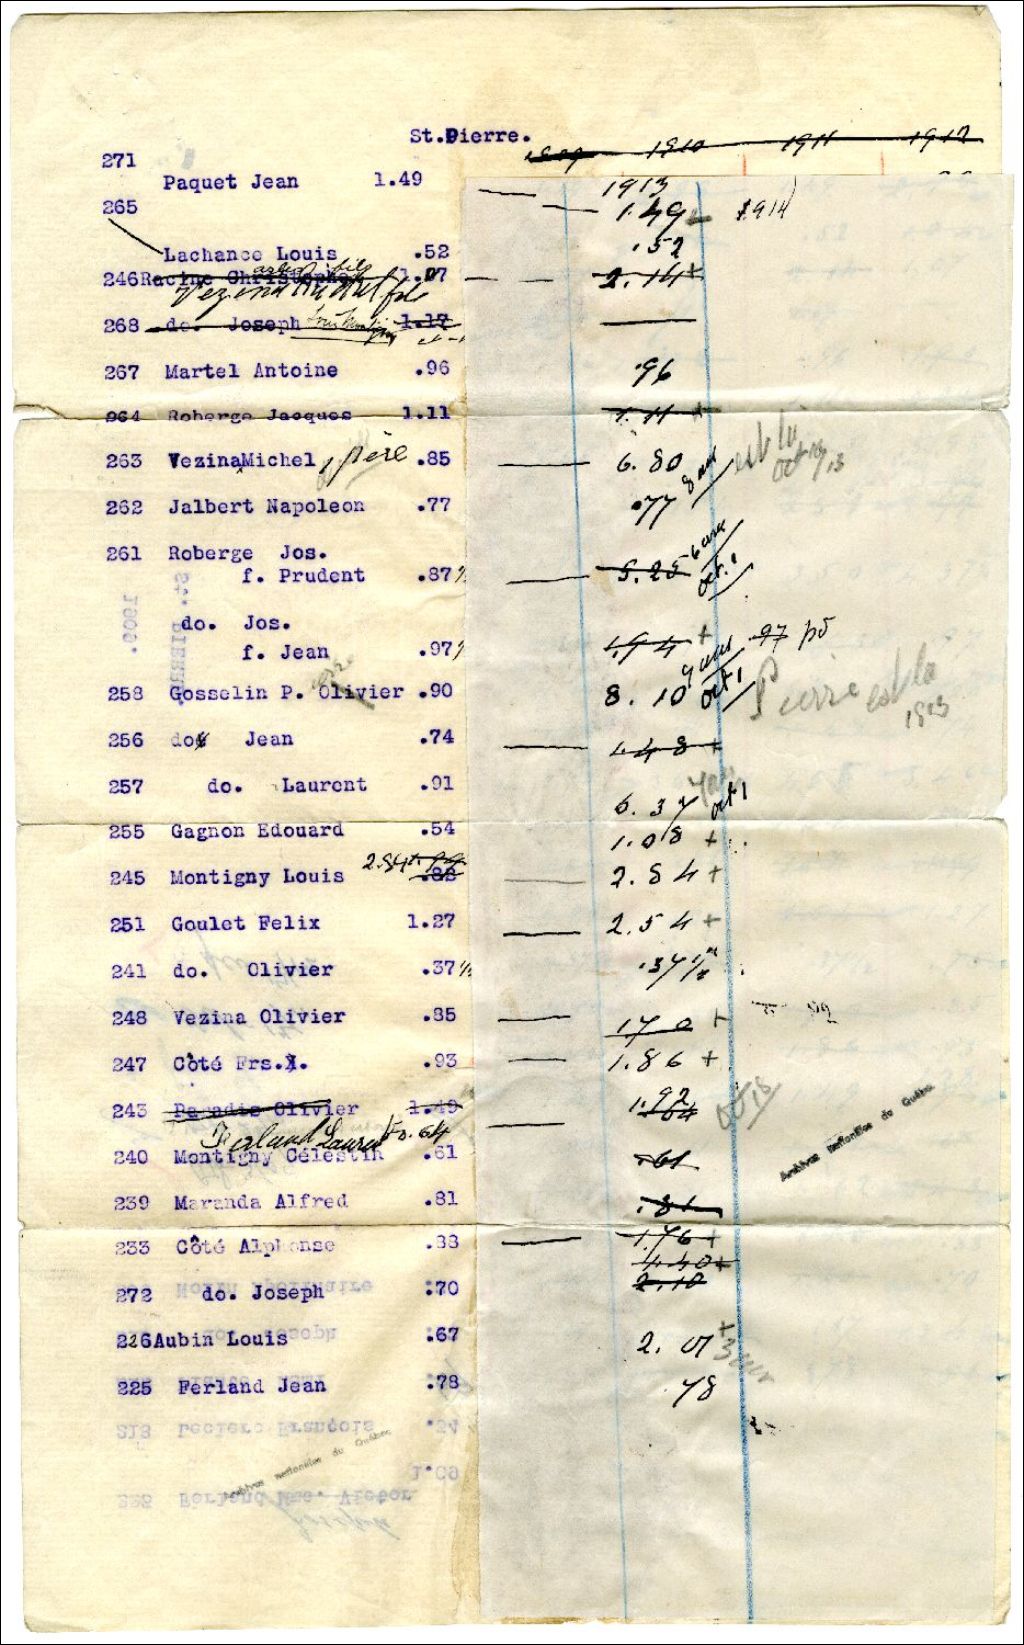 St.Pierre.
1909 1910 1911 1912
271
Paquet Jean 1.49
1913
1.49 1914
265
Lachance Louis .52 .52
246 Racine Christophe 1.07 2.14 +
Vezina Michel fils
268 do. Joseph 1.17
267 Martel Antoine .96 .96
264 Roberge Jacques 1.11 1.11 +
263 Vezina Michel, père .85 6.80 8 ans est là oct 1913
262 Jalbert Napoleon .77 .77
261 Roberge Jos.
f. Prudent .87½ 5.25 6 ans oct. 1
do. Jos.
f. Jean .97½ 1.94 + .97 pd
258 Gosselin P. Olivier .90 8.10 9 ans oct 1 Pierre est là 1913
256 do. Jean .74 1.48 +
257 do. Laurent .91 6.37 7 ans oct 1
255 Gagnon Edouard .54 1.08 +
245 Montigny Louis 2.84 .82 2.84 +
251 Goulet Felix 1.27 2.54 +
241 do. Olivier .37½ .37½
248 Vezina Olivier .85 1.70 +
247 Côté Frs.X. .93 1.86 +
243 Paradis Olivier 1.49 1.92 .64
Ferland Laurent 0.64
240 Montigny Célestin .61 .61
239 Maranda Alfred .81 .81
233 Côté Alphonse .88 1.76 +
4.40 +
272 do. Joseph .70 2.10
226 Aubin Louis .67 2.01 + 3 ans
225 Ferland Jean .78 .78
Archives nationales du Québec
Archives nationales du Québec
St. PIERRE
1909.